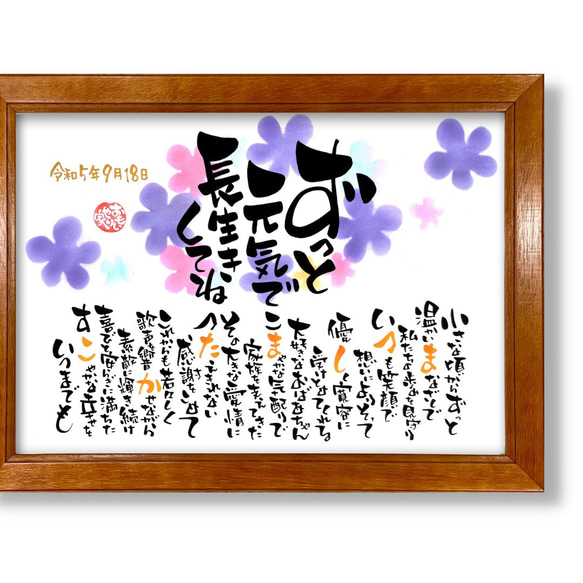 令和5年9月18日
ずっと
元気で
長生き
してね
小さな頃からずっと
温かいまなざしで
私たちの歩みを見守り
いつも笑顔で
想いによりそって
優しく寛容に
受けとめてくれる
大好きなおばあちゃん
こまやかな気配りで
家族を支えてきた
その大きな愛情に
つたえきれない
感謝をよせて
これからも若々しく
歌声を響かせながら
素敵に輝き続け
喜びと安らぎに満ちた
すこやかな幸せを
いつまでも